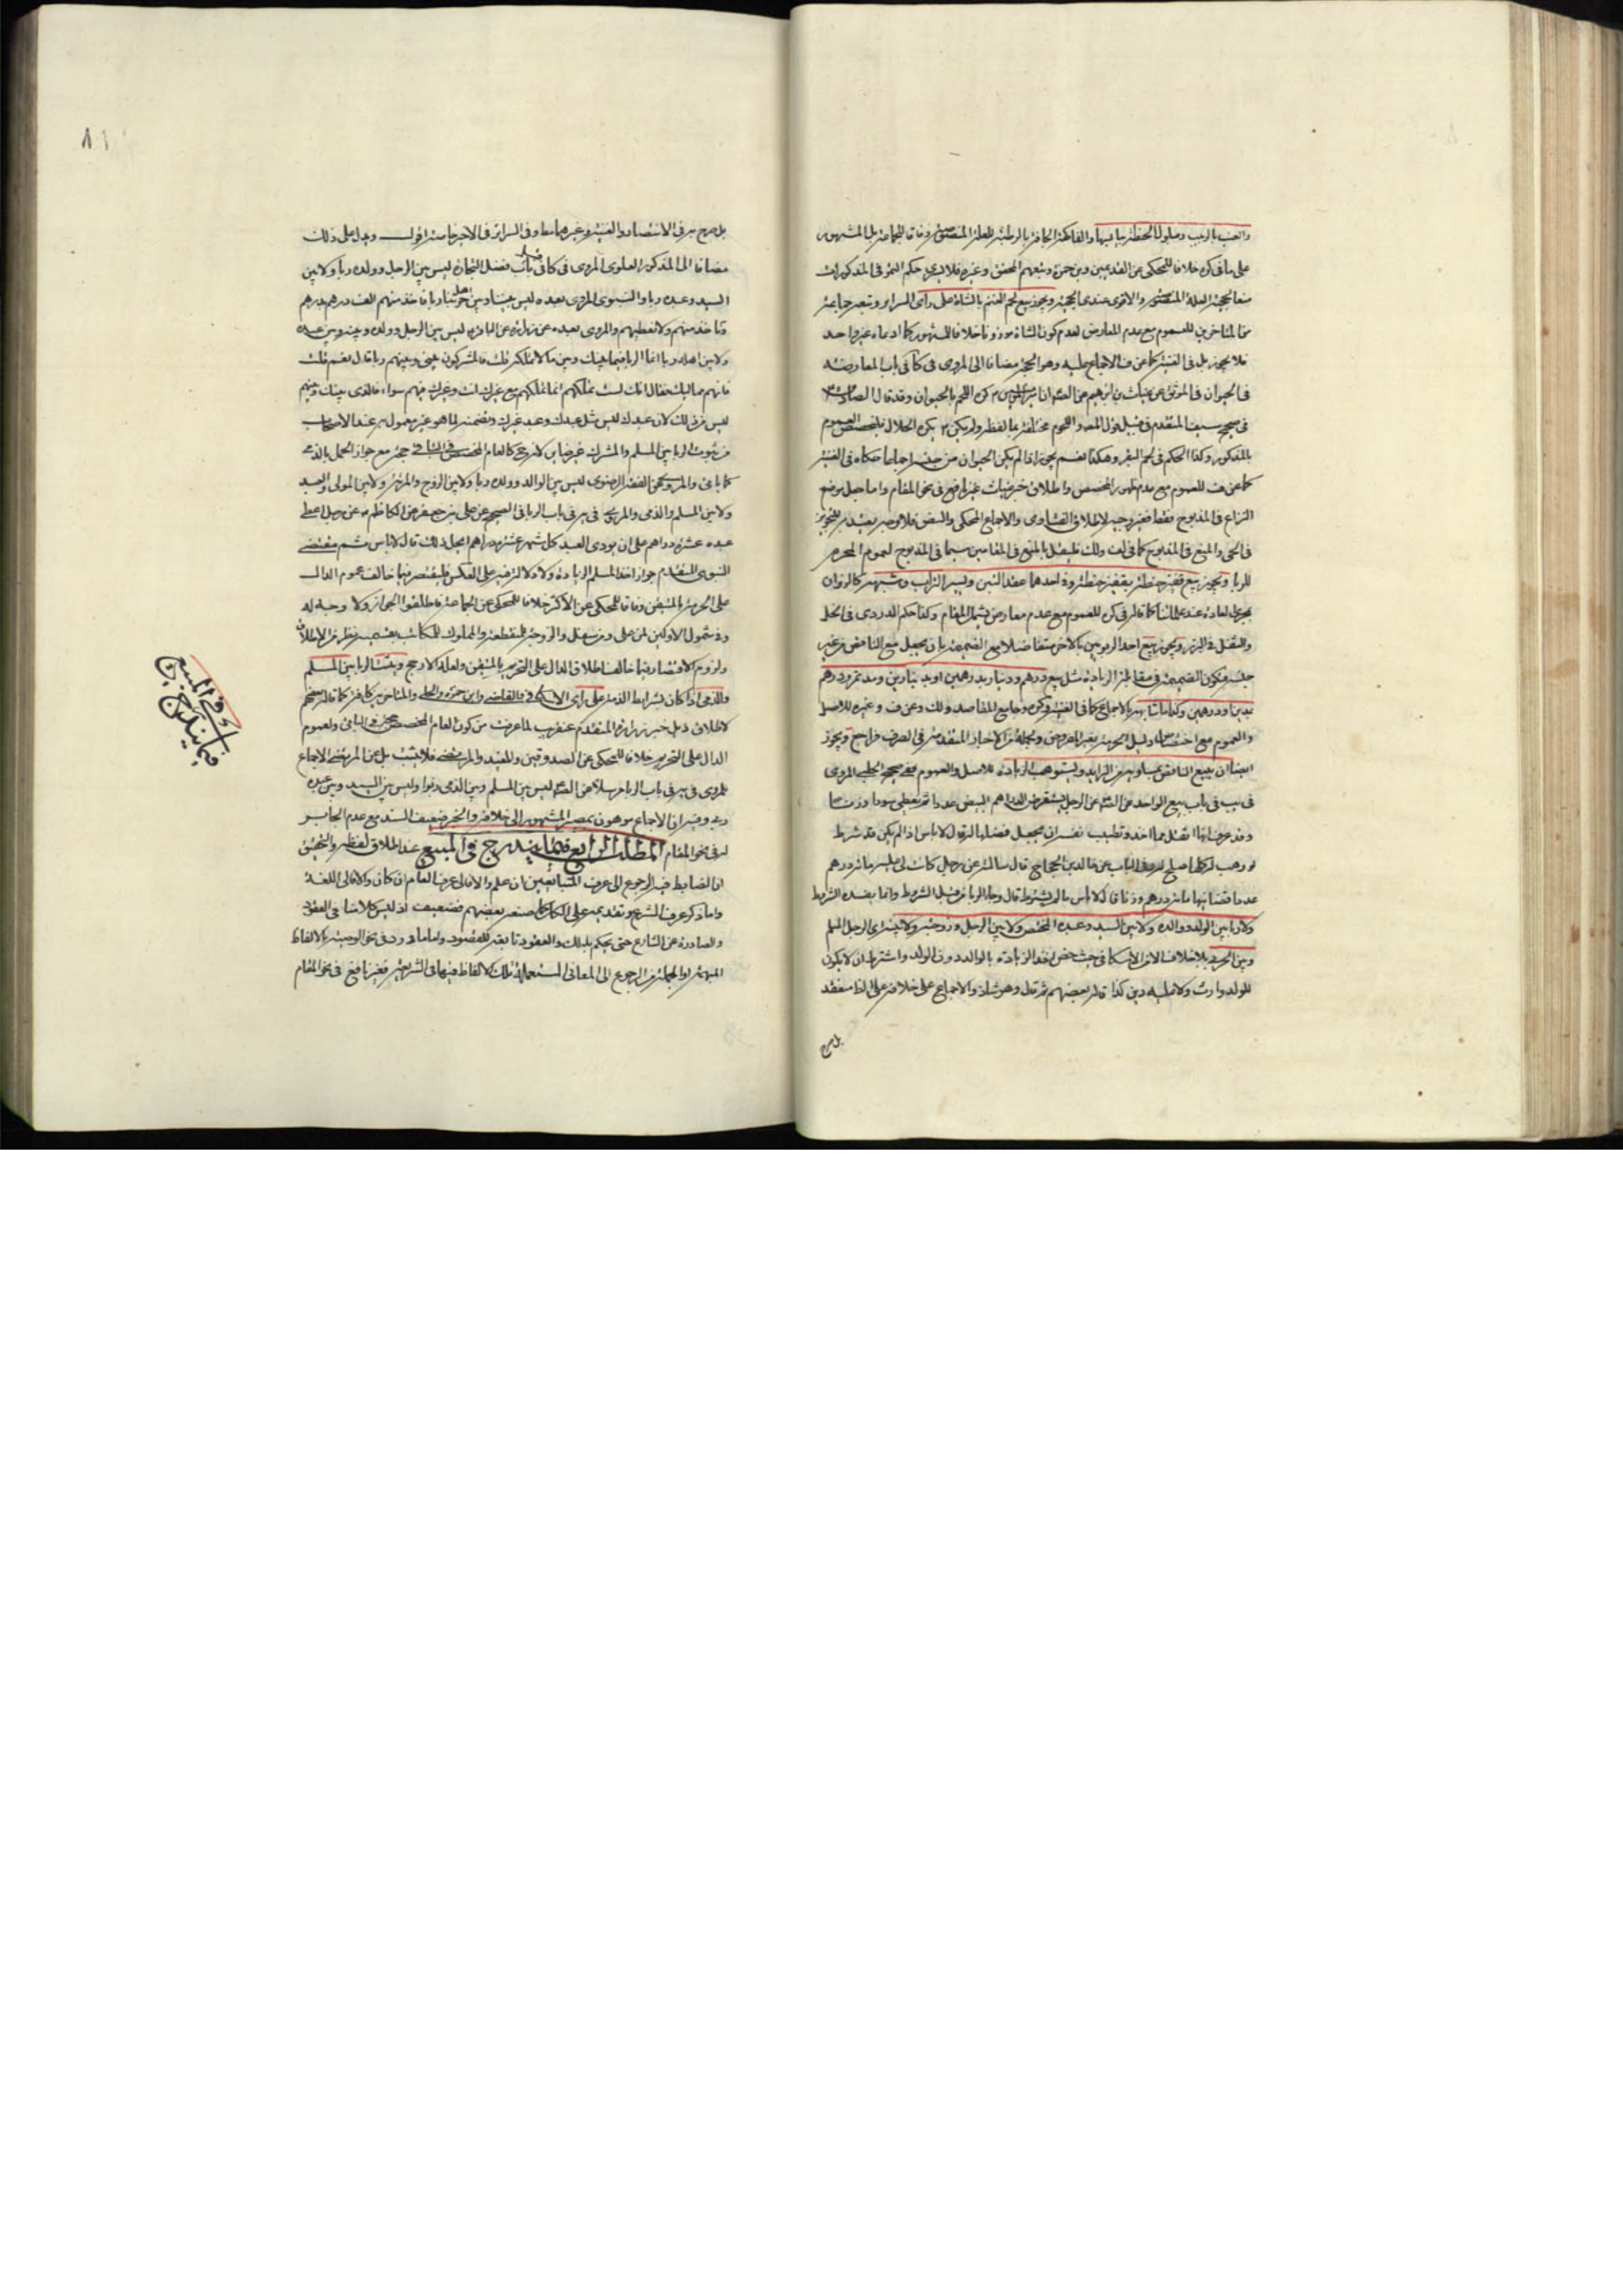 والعنب بالزبيب ومبلول الحنطة بيابسها والفاكهة الجافة بالرطبة للعلة المنصوصة وفاقا لجماعة بل المشهور
على ما في كره خلافا للمحكي عن القديمين وبن حمزة وتبعهم المحقق وغيره فلا يسري حكم التمر في المذكورات
منعا لحجية العلة المنصوصة والاقوى عندي الحجية ويجوز بيع لحم الغنم بالشاة على راى السرائر وتبعه جماعة
من المتاخرين للعموم مع عدم المعارض لعدم كون الشاة موزونا خلافا للمشهور كما ادعاه غير واحد
فلا يجوز بل في الغنية كما عن ف الاجماع عليه وهو الحجة مضافا الى المروى في كا في باب المعاوضة
في الحيوان في الموثق عن غياث بن ابرهيم عن الص ان امير المؤمنين كره اللحم بالحيوان وقد قال الصادق
في صحيح سيف المتقدم ولم يكن يكره الحلال فليخصص العموم
بالمذكور وكذا الحكم في لحم البقر وهكذا نعم يجوز اذا لم يكن الحيوان من جنسه اجماعا حكاه في الغنية
كما عن ف للعموم مع عدم ظهور المخصص واطلاق خبر غياث غير نافع في نحو المقام واما جعل موضع
النزاع في المذبوح فقط فغير وجيه لاطلاق الفتاوى والاجماع المحكي والنص فلا وجه
في الحى والمنع في المذبوح كما في لف ولك فليقل بالمنع في المقامين سيما في المذبوح لعموم المحرم
للربا ويجوز بيع قفيز حنطة بقفيز حنطة وفي احدهما عقد التبن ويسير التراب وشبهه كالزوان
بمجرى العادة عند علمائنا كما قاله في كره للعموم مع عدم معارض يشمل المقام وكذا حكم الدردى في الخل
والثفل في البزر ويجوز بيع احد الربويين بالاخر متفاضلا مع الضميمة بان يجعل مع الناقص من غير
جنسه فتكون الضميمة في مقابلة الزيادة مثل بيع درهم ودينار بدرهمين او بدينارين ومد تمر ودرهم
بمدين او درهمين وكذا ما شابهه بالاجماع كما في الغنية وكره وجامع المقاصد ولك وعن ف وغيره للاصل
والعموم مع اختصاص دليل الحرمة بغير المفروض ولجملة من الاخبار المتقدمة في الصرف فراجع ويجوز
ايضا ان يبيع الناقص بمساويه من الزايد ويستوهب الزيادة للاصل والعموم وفي صحيح الحلبي المروى
في يب في باب بيع الواحد عن الص عن الرجل يستقرض الدراهم البيض عددا ثم يعطى سودا وزنا
وقد عرف انها اثقل مما اخذ وتطيب نفسه ان يجعل فضلها له قال لا باس اذا لم يكن قد شرط
لو وهب له كلها صلح له وفي الباب عن خالد بن الحجاج قال سالته عن رجل كانت لى عليه مائة درهم
عددا قضانيها مائة درهم وزنا قال لا باس ما لم يشترط قال وجا الربا من قبل الشروط وانما يفسده الشروط
ولا ربا بين الولد ووالده ولا بين السيد وعبده المختص ولا بين الرجل وزوجته ولا بين الرجل المسلم
وبين الحربى بلا خلاف الا من الاسكافي حيث خص اخذ الزيادة بالوالد دون الولد واشترط ان لا يكون
للولد وارث ولا عليه دين كذا قاله بعضهم ثم قال وهو شاذ والاجماع على خلافه على الظ منعقد
بل صرح
٨١
بل صرح به في الانتصار والغنية وغيرهما معا وفي السرائر في الاخر خاصة اقول ويدل على ذلك
مضافا الى المذكور العلوى المروى في كا في باب فضل التجارة ليس بين الرجل وولده ربا ولا بين
السيد وعبده ربا والنبوى المروى بعيده ليس بيننا وبين اهل حربنا ربا ناخذ منهم الف درهم بدرهم
وناخذ منهم ولا نعطيهم والمروى بعيده عن زرارة عن الباقر ليس بين الرجل وولده وبينه وبين عبده
ولا بين اهله ربا انما الربا فيما بينك وبين ما لا تملك قلت فالمشركون بينى وبينهم ربا قال نعم قلت
فانهم مماليك فقال انك لست تملكهم انما تملكهم مع غيرك انت وغيرك فيهم سواء فالذى بينك وبينهم
ليس من ذلك لان عبدك ليس مثل عبدك وعبد غيرك وتضمنه لما هو غير معمول به عند الاصحاب
من ثبوت الربا بين المسلم والمشرك غير ضاير لانه حجة كالعام المخصص في الباقى حجة مع جواز الحمل بالذمى
كما ياتى والمروى عن الفقه الرضوى ليس بين الوالد وولده ربا ولا بين الزوج والمرئة ولا بين المولى والعبد
ولا بين المسلم والذمى والمروى في يه في باب الربا في الصحيح عن على بن جعفر عن الكاظم عن رجل اعطى
عبده عشرة دراهم على ان يودى العبد كل شهر عشرة دراهم ايحل ذلك قال لا باس ثم مقتضى
النبوى المتقدم جواز اخذ المسلم الزيادة ولا دلالة فيه على العكس فليقتصر فيما خالف عموم الدال
على الحرمة بالمتيقن وفاقا للمحكي عن الاكثر خلافا للمحكي عن الجماعة فاطلقوا الجواز ولا وجه له
وفي شمول الاولين لمن على ومن سفل والزوجة للمنقطعة والمملوك للمكاتب بقسميه نظر من الاطلاق
ولزوم الاقتصار فيما خالف اطلاق الدال على التحريم بالمتيقن ولعله الارجح ويثبت الربا بين المسلم
والذمى اذا كان بشرايط الذمة على راى الاسكافي والقاضى وابن حمزه والحلى والمتاخرين كافة كما قاله بعضهم
لاطلاق ذيل خبر زرارة المتقدم عنقريب لما عرفت من كون العام المخصص حجة في الباقى ولعموم
الدال على التحريم خلافا للمحكي عن الصدوقين والمفيد والمرتضى فلا يثبت بل عن المرتضى الاجماع
للمروى في يه في باب الربا مرسلا عن الص ليس بين المسلم وبين الذمى ربوا وليس بين السيد وبين عبده
ربا وفيه ان الاجماع موهون بمصير المشهور الى خلافه والخبر ضعيف السند مع عدم الجابر
له في نحو المقام المطلب الرابع فيما يندرج في المبيع عند اطلاق لفظه والتحقيق
ان الضابط فيه الرجوع الى عرف المتبايعين ان علم والا فالى عرف العام ان كان والا فالى اللغة
واما ذكر عرف الشرع وتقديمه على الكل كما صنعه بعضهم فضعيف اذ ليس كلامنا في العقود
والصادرة عن الشارع حتى يحكم بذلك والعقود تابعة للقصود واما ما ورد في نحو الوصية بالالفاظ
المبهمة او المجملة من الرجوع الى المعانى المستعملة تلك الالفاظ فيها في الشريعة فغير نافع في نحو المقام
في المبيع
فيما يندرج